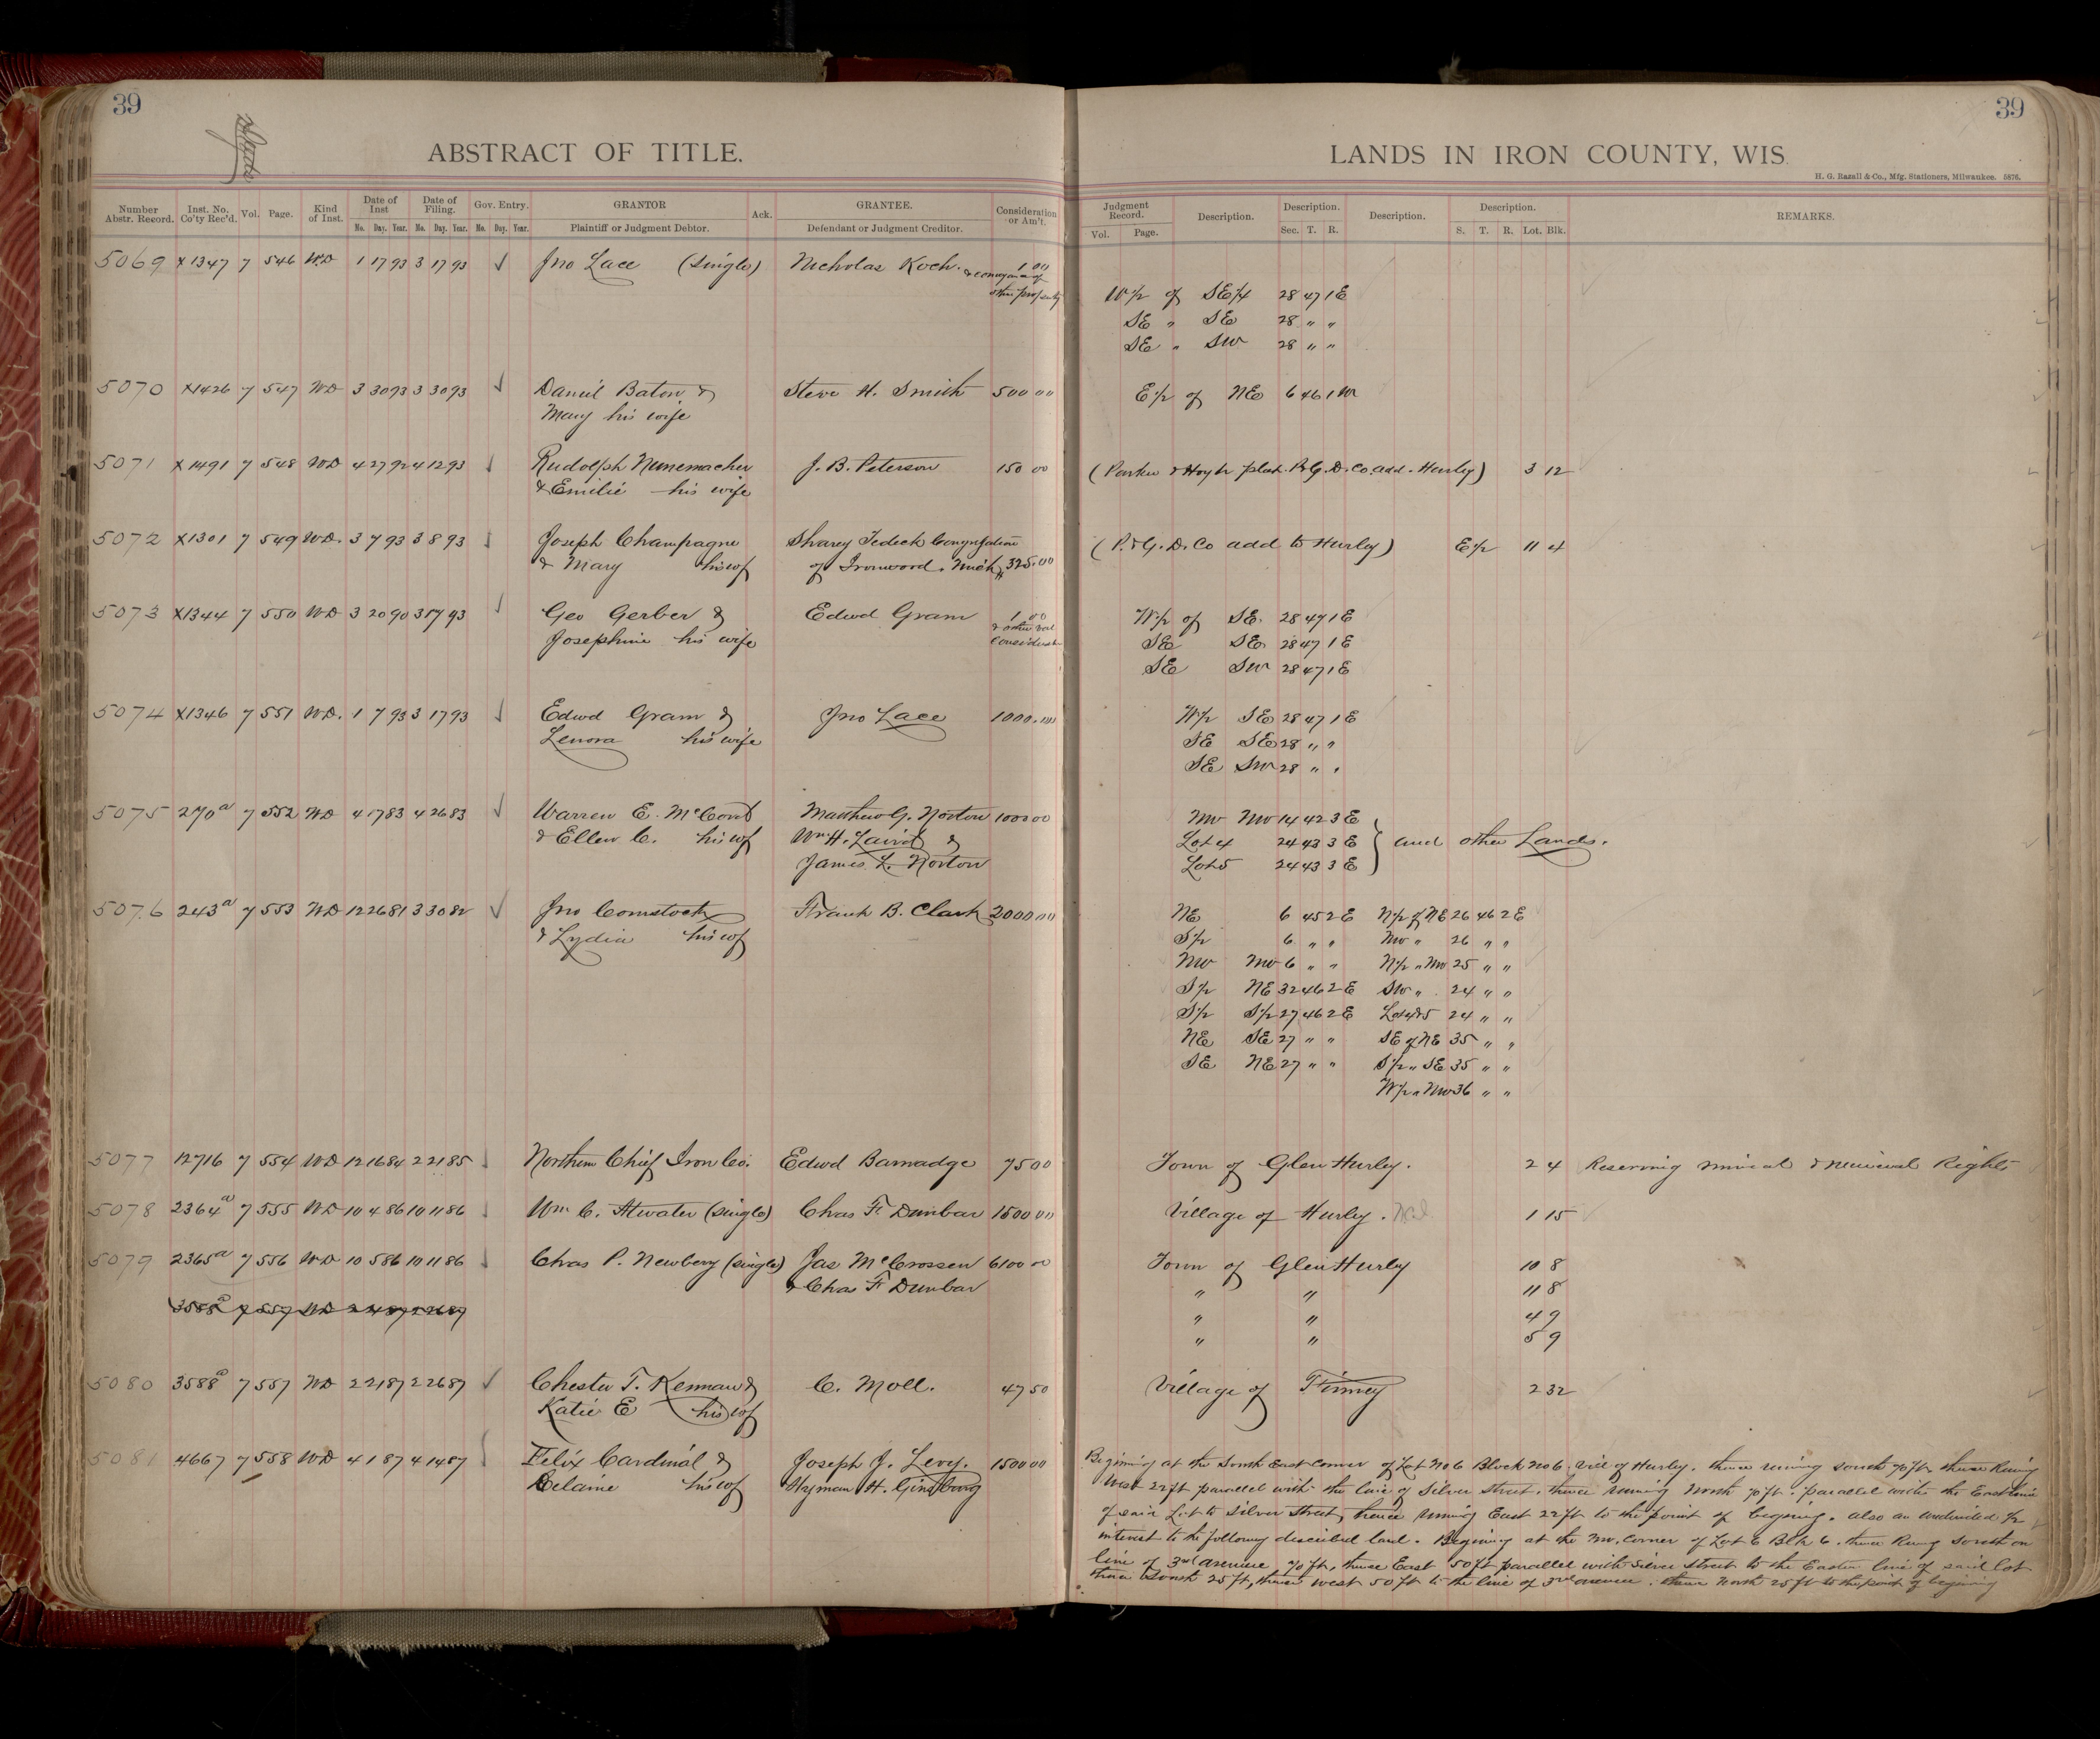 39
39
ABSTRACT OF TITLE.
LANDS IN IRON COUNTY, WIS.
H. G. Razall & Co., Mfg. Stationers, Milwaukee. 5876.
Number Abstr. Record. Inst. No. Co'ty Rec'd. Vol. Page. Kind of Inst. Date of Inst Date of Filing. Gov. Entry. GRANTOR Ack. GRANTEE. Consideration or Am't. Judgment Record. Description. Description. Description. Description. REMARKS.
Mo. Day. Year. Mo. Day. Year. Mo. Day. Year. Plaintiff or Judgment Debtor. Defendant or Judgment Creditor. Vol. Page. Sec. T. R. S. T. R. Lot. Blk.
5069 x1347 7 546 WD 1 17 93 3 17 93 ✓ Jno Lace (single) Nicholas Koch. 1 00
& conveyance of
other property W 1/2 of SE 1/4 28 47 1 E
SE " SE 28 " "
SE " SW 28 " "
5070 x1426 7 547 WD 3 30 93 3 30 93 ✓ Daniel Baton & Steve H. Smith 500 00 E 1/2 of NE 6 46 1 W
Mary his wife
5071 x1491 7 548 WD 4 27 92 4 12 93 ✓ Rudolph Nunemacher J. B. Peterson 150 00 (Parker & Hoyt plat P.&G.D.Co. add. Hurley) 3 12
& Emilie his wife
5072 x1301 7 549 WD. 3 7 93 3 8 93 ✓ Joseph Champagne Sharey Tedeck Congregation (P.&G.D.Co add to Hurley) E 1/2 11 4
& Mary his wf of Ironwood. Mich, 325.00
5073 x1344 7 550 WD 3 20 90 3 17 93 ✓ Geo Gerber & Edwd Gram 1 00 W 1/2 of SE. 28 47 1 E
Josephine his wife & other val SE SE 28 47 1 E
SE SW 28 47 1 E
5074 x1346 7 551 WD. 1 7 93 3 17 93 ✓ Edwd Gram & Jno Lace 1000.00 W 1/2 SE 28 47 1 E
Lenora his wife SE SE 28 " "
SE SW 28 " "
5075 270a 7 552 WD 4 17 83 4 26 83 ✓ Warren E. McCord Matthew G. Norton 1000 00 NW NW 14 42 3 E
& Ellen C. his wf Wm H. Laird & Lot 4 24 43 3 E } and other Lands.
James L. Norton Lot 5 24 43 3 E
5076 243a 7 553 WD 12 26 81 3 30 82 ✓ Jno Comstock Frank B. Clark 2000 00 NE 6 45 2 E N 1/2 of NE 26 46 2 E
& Lydia his wf S 1/2 6 " " NW " 26 " "
NW NW 6 " " N 1/2 " NW 25 " "
S 1/2 NE 32 46 2 E SW " 24 " "
S 1/2 S 1/2 27 46 2 E Lot 4&5 24 " "
NE SE 27 " " SE of NE 35 " "
SE NE 27 " " S 1/2 " SE 35 " "
W 1/2 " NW 36 " "
5077 12716 7 554 WD 12 16 84 2 21 85 ✓ Northern Chief Iron Co. Edwd Barnadge 75 00 Town of Glen Hurley. 2 4 Reserving mineral & Rights
5078 2364a 7 555 WD 10 4 86 10 11 86 ✓ Wm C. Atwater (single) Chas F. Dunbar 1500 00 Village of Hurley. 1 15
5079 2365a 7 556 WD 10 5 86 10 11 86 ✓ Chas P. Newberg (single) Jas McCrossen 6100 00 Town of Glen Hurley 10 8
& Chas F Dunbar " " 11 8
3588a 7 557 WD 2 21 87 2 26 87 " " 4 9
" " 5 9
5080 3588a 7 557 WD 2 21 87 2 26 87 ✓ Chester T. Kennan & C. Moll. 47 50 Village of Finney 2 32
Katie E his wf
5081 4667 7 558 WD 4 1 87 4 14 87 Felix Cardinal & Joseph J. Levy. 1500 00
Celaine his wf Hyman H. Ginsburg
Begining at the South East corner of Lot No 6 Block No 6. Vill of Hurley. thence runing south 70 ft, thence Runing
West 22 ft parallel with the line of Silver Street. thence runing North 70 ft. parallel with the East line
of said Lot to Silver Street, thence runing East 22 ft to the point of begining. also an undivided 1/2
interest to the following described land. Begining at the NW. Corner of Lot 6 Blk 6. thence Runing South on
line of 3rd avenue 70 ft, thence East 50 ft parallel with Silver Street to the Easter line of said lot
thence South 25 ft, thence west 50 ft to the line of 3rd avenue. thence North 25 ft to the point of begining